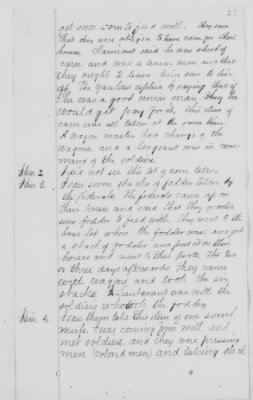 out some corn to feed with. They said
that they were obliged to have corn for their
horses. Claimant said he was short of
corn and was a Union man and that
they ought to leave him corn to live
on. The Yankees replied by saying that if
he was a good Union man, they he
would get pay for it. This item of
corn was all taken at the same time.
A wagon master had charge of the
wagons, and a Sergeant was in com-
mand of the soldiers.
Item 2. I did not see this lot of corn taken.
Item 3. I saw seven stacks of fodder taken by
the Federals. The federals came up on
their horses and said that they wanted
some fodder to feed with. They went to the
horse lot where the fodder was and got
a stack of fodder and put it on their
horses and went to their posts. Then two
or three days afterwards They came
with wagons and took the six
stacks. Lieutenant was with the
soldiers who took the fodder.
Item 4. I saw them take this item of one sorrel
mule. I was coming from mill and
met soldiers and they were pressing
men (colored men) and taking stock